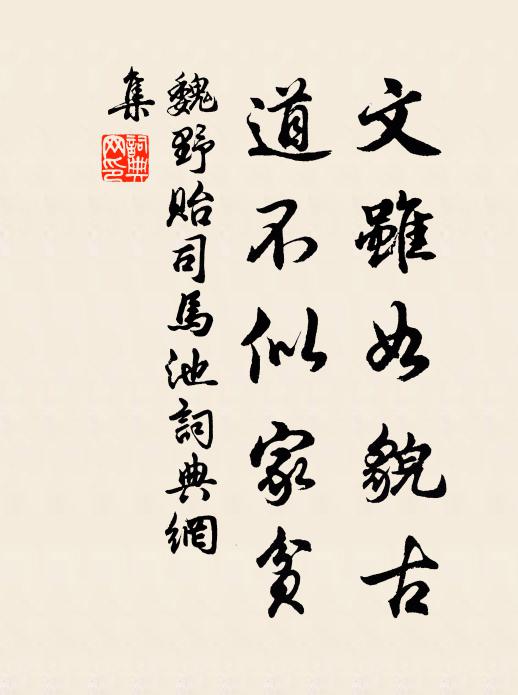 文雖如貌古
道不似家貧
魏野貽司馬池詞典網
集
詞典
网印